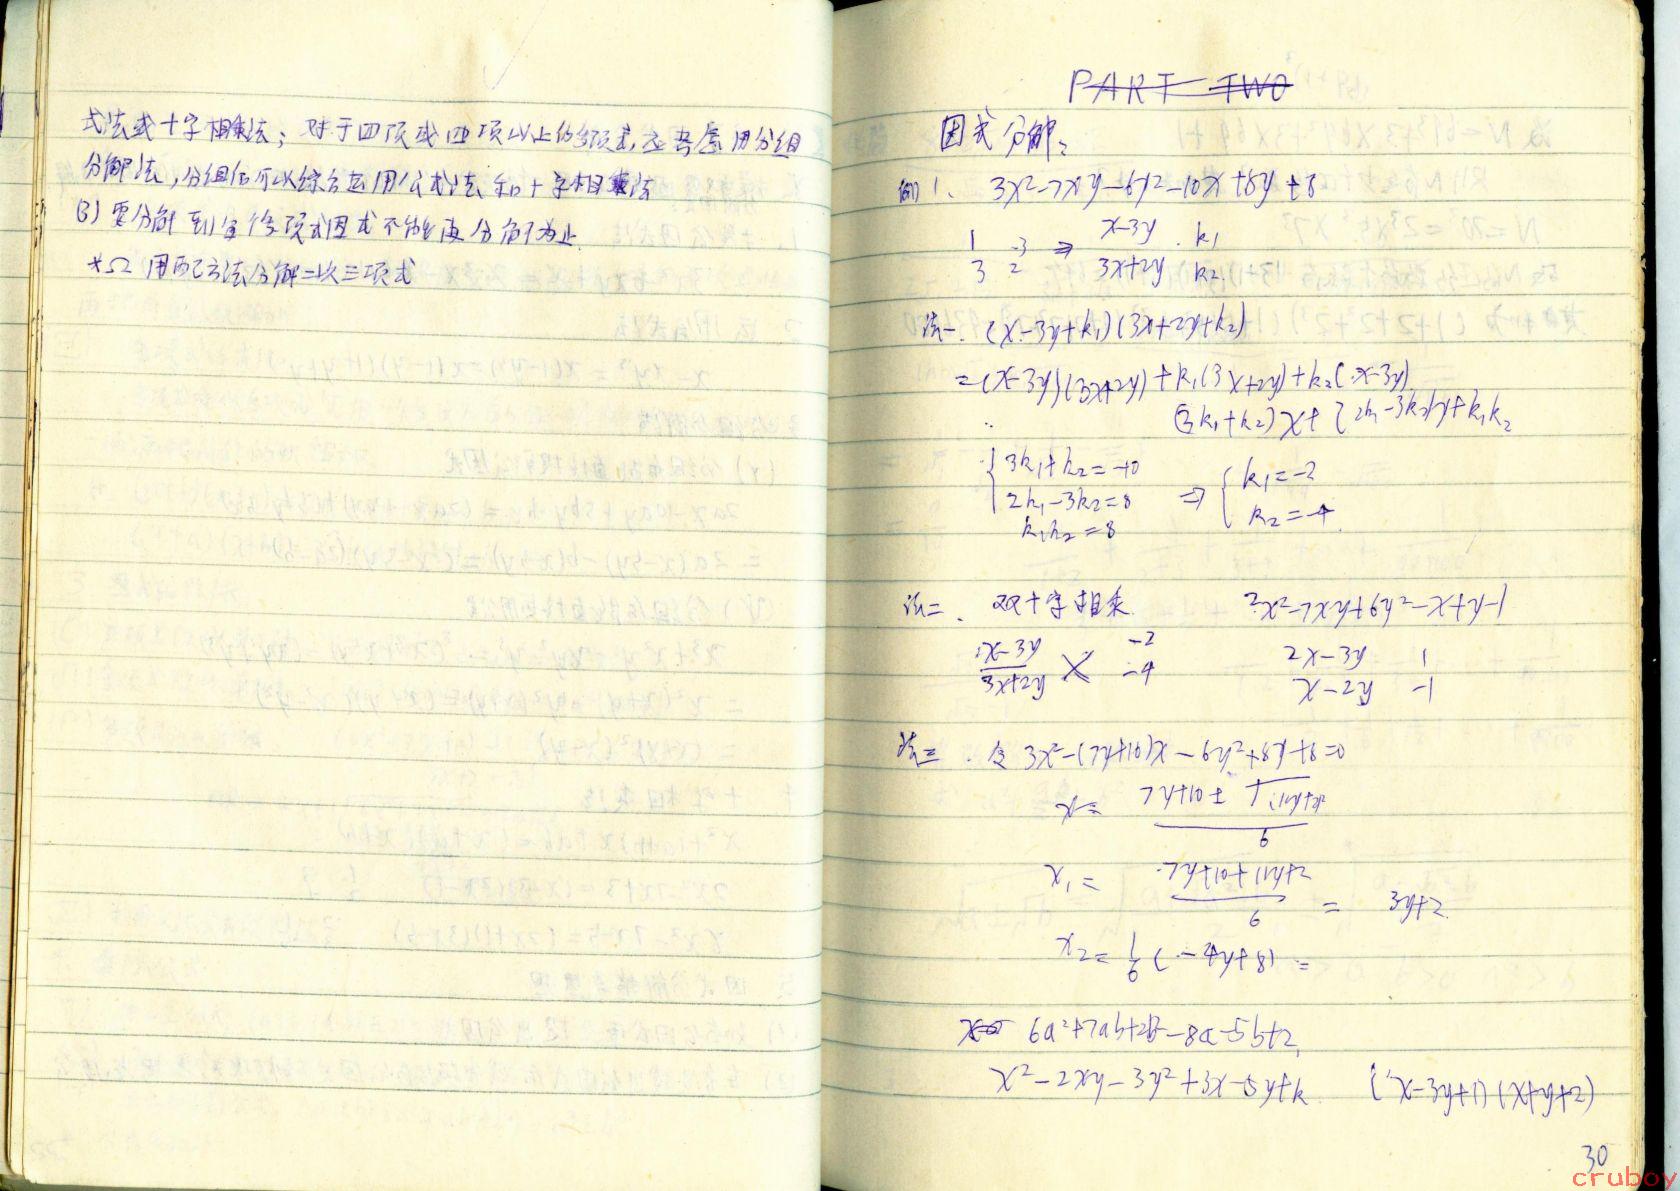 式法或十字相乘法；对于四项或四项以上的多项式，应考虑用分组
分解法，分组后可以综合运用公式法和十字相乘法
(3) 要分解到每个多项式因式不能再分解为止.
*Ω 用配方法分解二次三项式
PART TWO
因式分解:
例1. 3x²-7xy-6y²-10x+8y+8
1 -3 ⇒ x-3y k₁
3 2 3x+2y k₂
法一. (x-3y+k₁)(3x+2y+k₂)
=(x-3y)(3x+2y)+k₁(3x+2y)+k₂(x-3y)
(3k₁+k₂)x+(2k₁-3k₂)y+k₁k₂
{3k₁+k₂=-10
2k₁-3k₂=8 ⇒ {k₁=-2
k₁k₂=8 k₂=-4.
法二. 双十字相乘 2x²-7xy+6y²-x+y-1
x-3y -2 2x-3y 1
3x+2y -4 x-2y -1
法三. 令 3x²-(7y+10)x-6y²+8y+8=0
x= 7y+10±
6
x₁= 7y+10+11y+2
6 = 3y+2
x₂=1/6(-4y+8) =
6a²+7ab+2b²-8a-5b+2,
x²-2xy-3y²+3x-5y+k (x-3y+1)(x+y+2)
30
cruboy